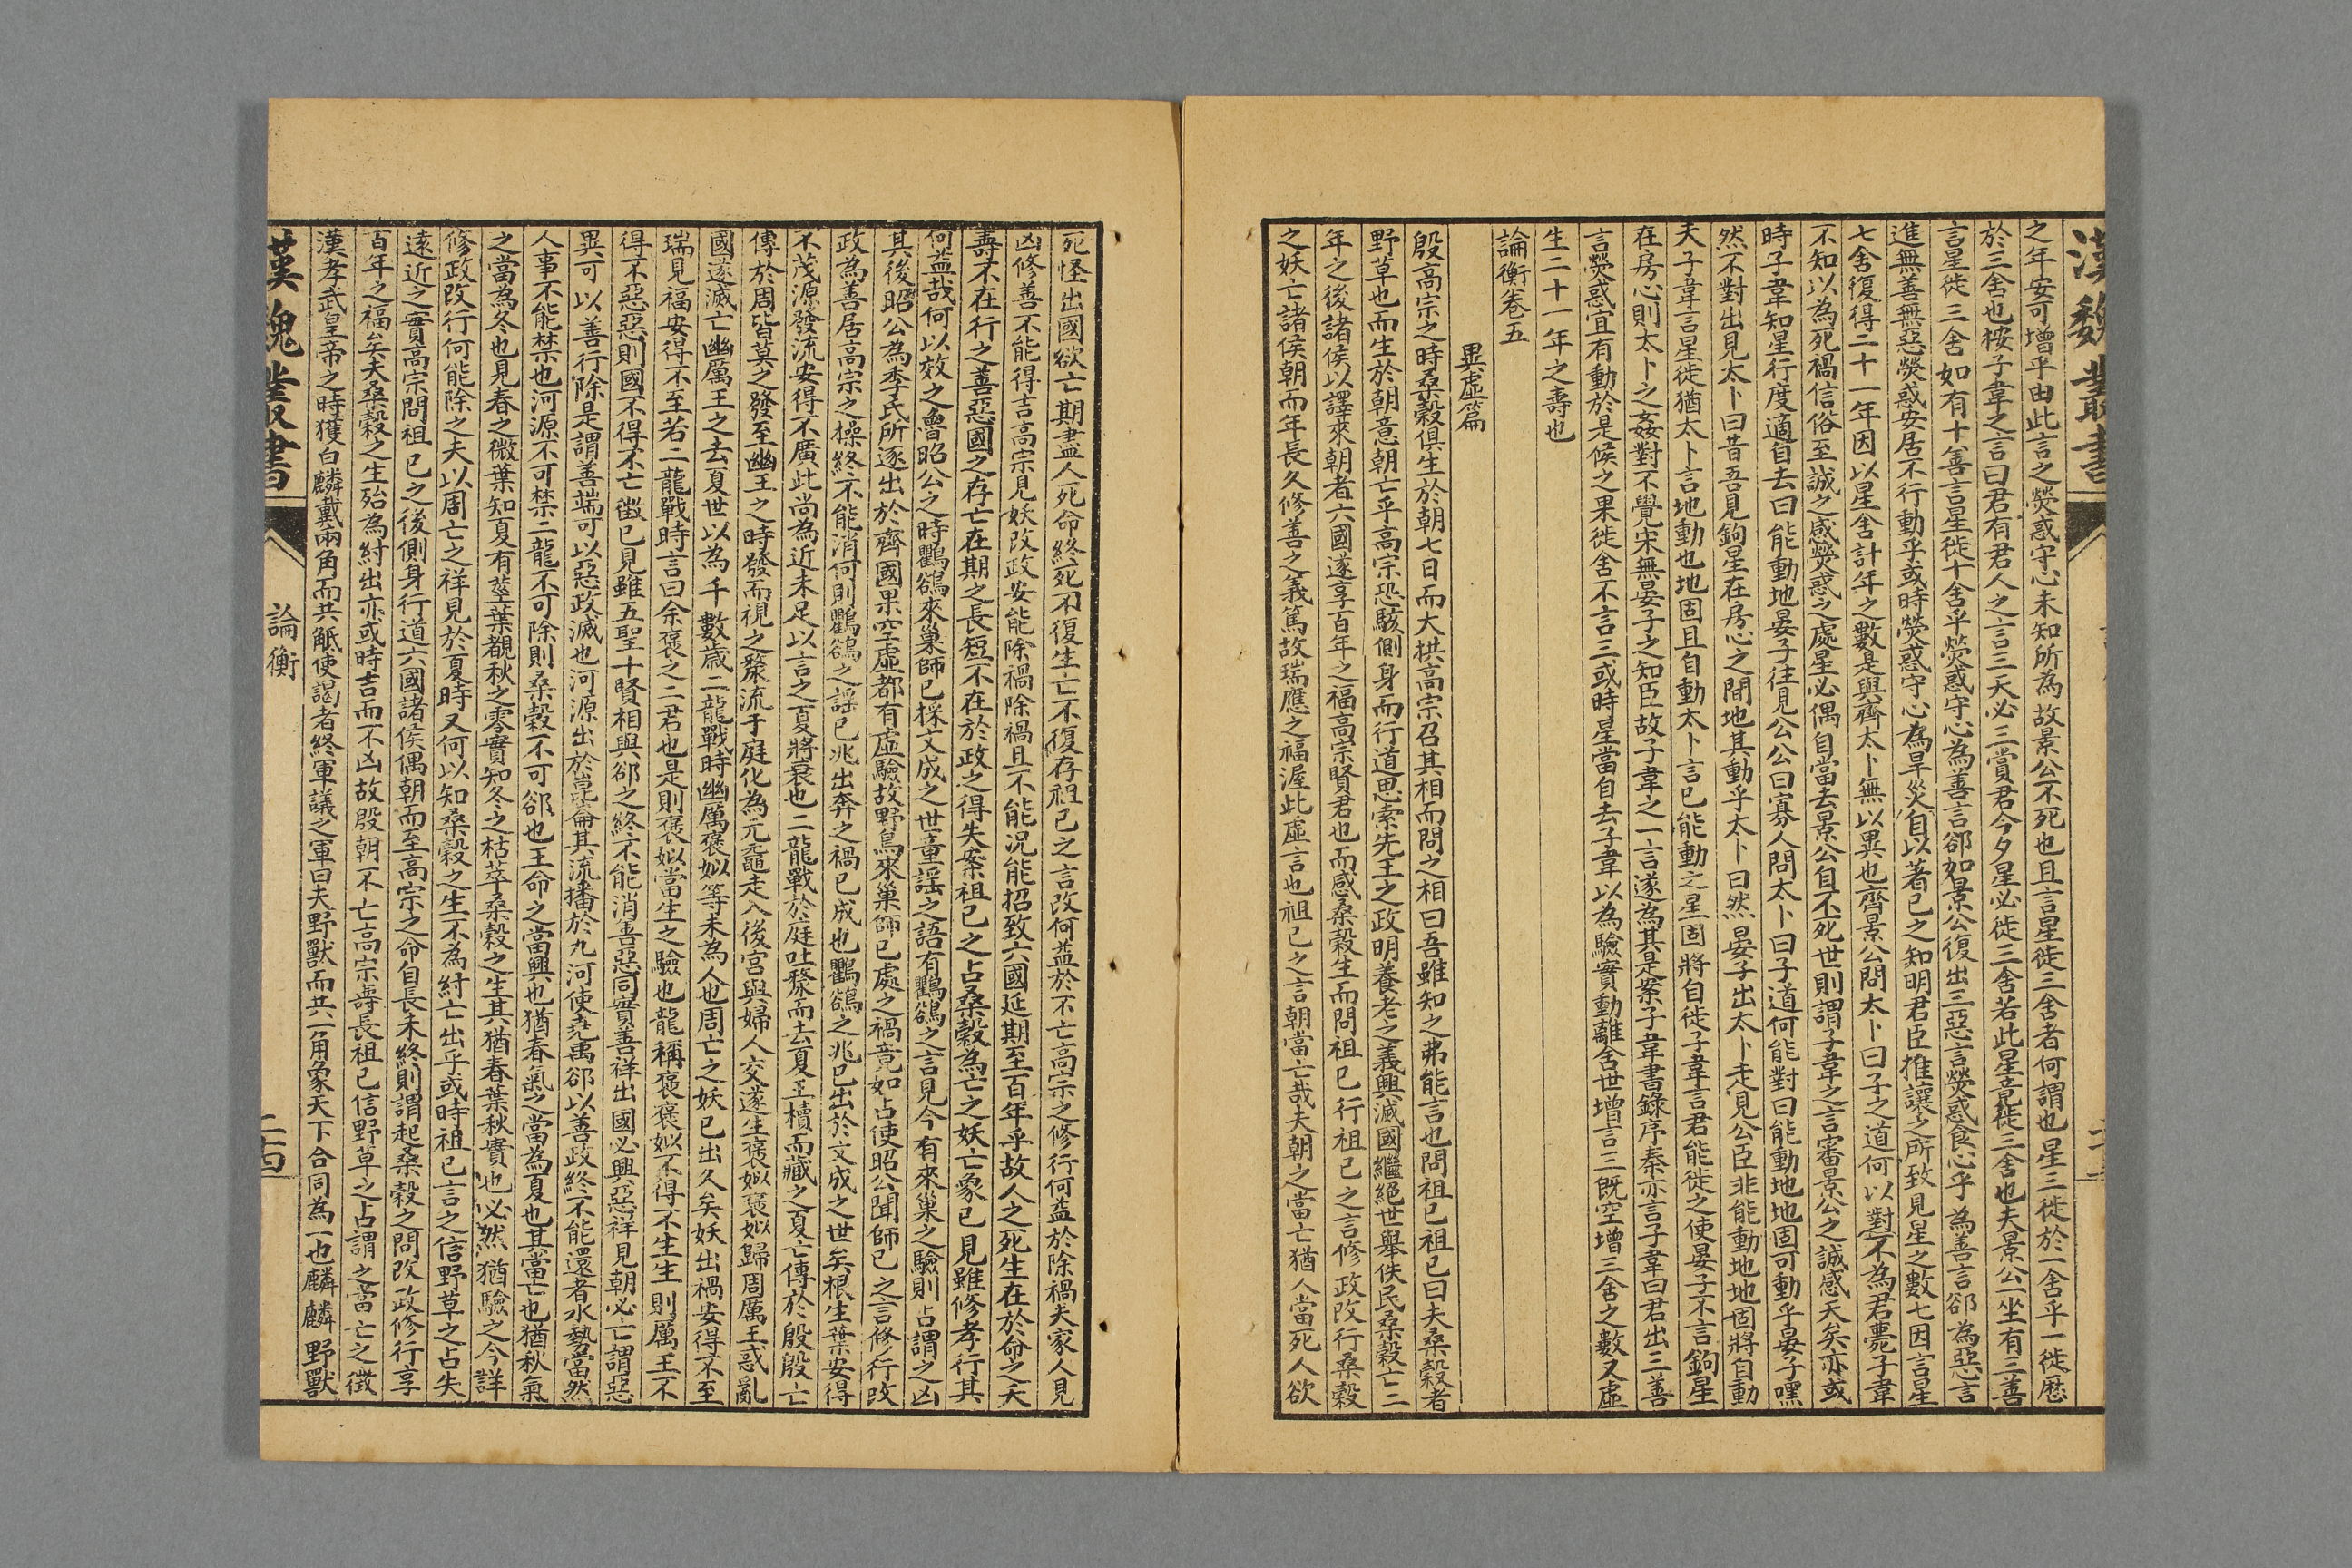 漢魏叢書
之年安可增乎由此言之熒惑守心未知所為故景公不死也且言星徙三舍者何謂也星三徙於一舍乎一徙歷
於三舍也桉子韋之言曰君有君人之言三天必三賞君今夕星必徙三舍若此星竟徙三舍也夫景公一坐有三善
言星徙三舍如有十善言星徙十舍乎熒惑守心為善言郤如景公復出三惡言熒惑食心乎為善言郤為惡言
進無善無惡熒惑安居不行動乎或時熒惑守心為旱災自以著己之知明君臣推讓之所致見星之數七因言星
七舍復得二十一年因以星舍計年之數是與齊太卜無以異也齊景公問太卜曰子之道何以對不為君薨子韋
不知以為死禍信俗至誠之感熒惑之處星必偶自當去景公自不死世則謂子韋之言審景公之誠感天矣亦或
時子韋知星行度適自去曰能動地晏子往見公公曰寡人問太卜曰子道何能對曰能動地地固可動乎晏子嘿
然不對出見太卜曰昔吾見鉤星在房心之間地其動乎太卜曰然晏子出太卜走見公臣非能動地地固將自動
夫子韋言星徙猶太卜言地動也地固且自動太卜言己能動之星固將自徙子韋言君能徙之使晏子不言鉤星
在房心則太卜之姦對不覺宋無晏子之知臣故子韋之一言遂為其是案子韋書錄序秦亦言子韋曰君出三善
言熒惑宜有動於是候之果徙舍不言三或時星當自去子韋以為驗實動離舍世增言三既空增三舍之數又虛
生二十一年之壽也
論衡卷五
異虛篇
殷高宗之時桑穀俱生於朝七日而大拱高宗召其相而問之相曰吾雖知之弗能言也問祖己祖己曰夫桑穀者
野草也而生於朝意朝亡乎高宗恐駭側身而行道思索先王之政明養老之義興滅國繼絕世舉佚民桑穀亡三
年之後諸侯以譯來朝者六國遂享百年之福高宗賢君也而感桑穀生而問祖己行祖己之言修政改行桑穀
之妖亡諸侯朝而年長久修善之義篤故瑞應之福渥此虛言也祖己之言朝當亡哉夫朝之當亡猶人當死人欲
死怪出國欲亡期盡人死命終死不復生亡不復存祖己之言改何益於不亡高宗之修行何益於除禍夫家人見
凶修善不能得吉高宗見妖改政安能除禍除禍且不能況能招致六國延期至百年乎故人之死生在於命之夭
壽不在行之善惡國之存亡在期之長短不在於政之得失案祖己之占桑穀為亡之妖亡象已見雖修孝行其
何益哉何以效之魯昭公之時鸜鵒來巢師己採文成之世童謠之語有鸜鵒之言見今有來巢之驗則占謂之凶
其後昭公為季氏所逐出於齊國果空虛都有虛驗故野鳥來巢師己處之禍竟如占使昭公聞師己之言修行改
政為善居高宗之操終不能消何則鸜鵒之謠已兆出奔之禍已成也鸜鵒之兆已出於文成之世矣根生葉安得
不茂源發流安得不廣此尚為近未足以言之夏將衰也二龍戰於庭吐漦而去夏王櫝而藏之夏亡傳於殷殷亡
傳於周皆莫之發至幽王之時發而視之漦流于庭化為元黿走入後宮與婦人交遂生褒姒褒姒歸周厲王惑亂
國遂滅亡幽厲王之去夏世以為千數歲二龍戰時幽厲褒姒等未為人也周亡之妖已出久矣妖出禍安得不至
瑞見福安得不至若二龍戰時言曰余褒之二君也是則褒姒當生之驗也龍稱褒褒姒不得不生生則厲王不
得不惡惡則國不得不亡徵已見雖五聖十賢相與郤之終不能消善惡同實善祥出國必興惡祥見朝必亡謂惡
異可以善行除是謂善端可以惡政滅也河源出於崑崙其流播於九河使堯禹郤以善政終不能還者水勢當然
人事不能禁也河源不可禁二龍不可除則桑穀不可郤也王命之當興也猶春氣之當為夏也其當亡也猶秋氣
之當為冬也見春之微葉知夏有莖葉覩秋之零實知冬之枯萃桑穀之生其猶春葉秋實也必然猶驗之今詳
修政改行何能除之夫以周亡之祥見於夏時又何以知桑穀之生不為紂亡出乎或時祖己言之信野草之占失
遠近之實高宗問祖己之後側身行道六國諸侯偶朝而至高宗之命自長未終則謂起桑穀之問改政修行享
百年之福矣夫桑穀之生殆為紂出亦或時吉而不凶故殷朝不亡高宗壽長祖己信野草之占謂之當亡之徵
漢孝武皇帝之時獲白麟戴兩角而共觝使謁者終軍議之軍曰夫野獸而共一角象天下合同為一也麟麟野獸
漢魏叢書
論衡
二十四